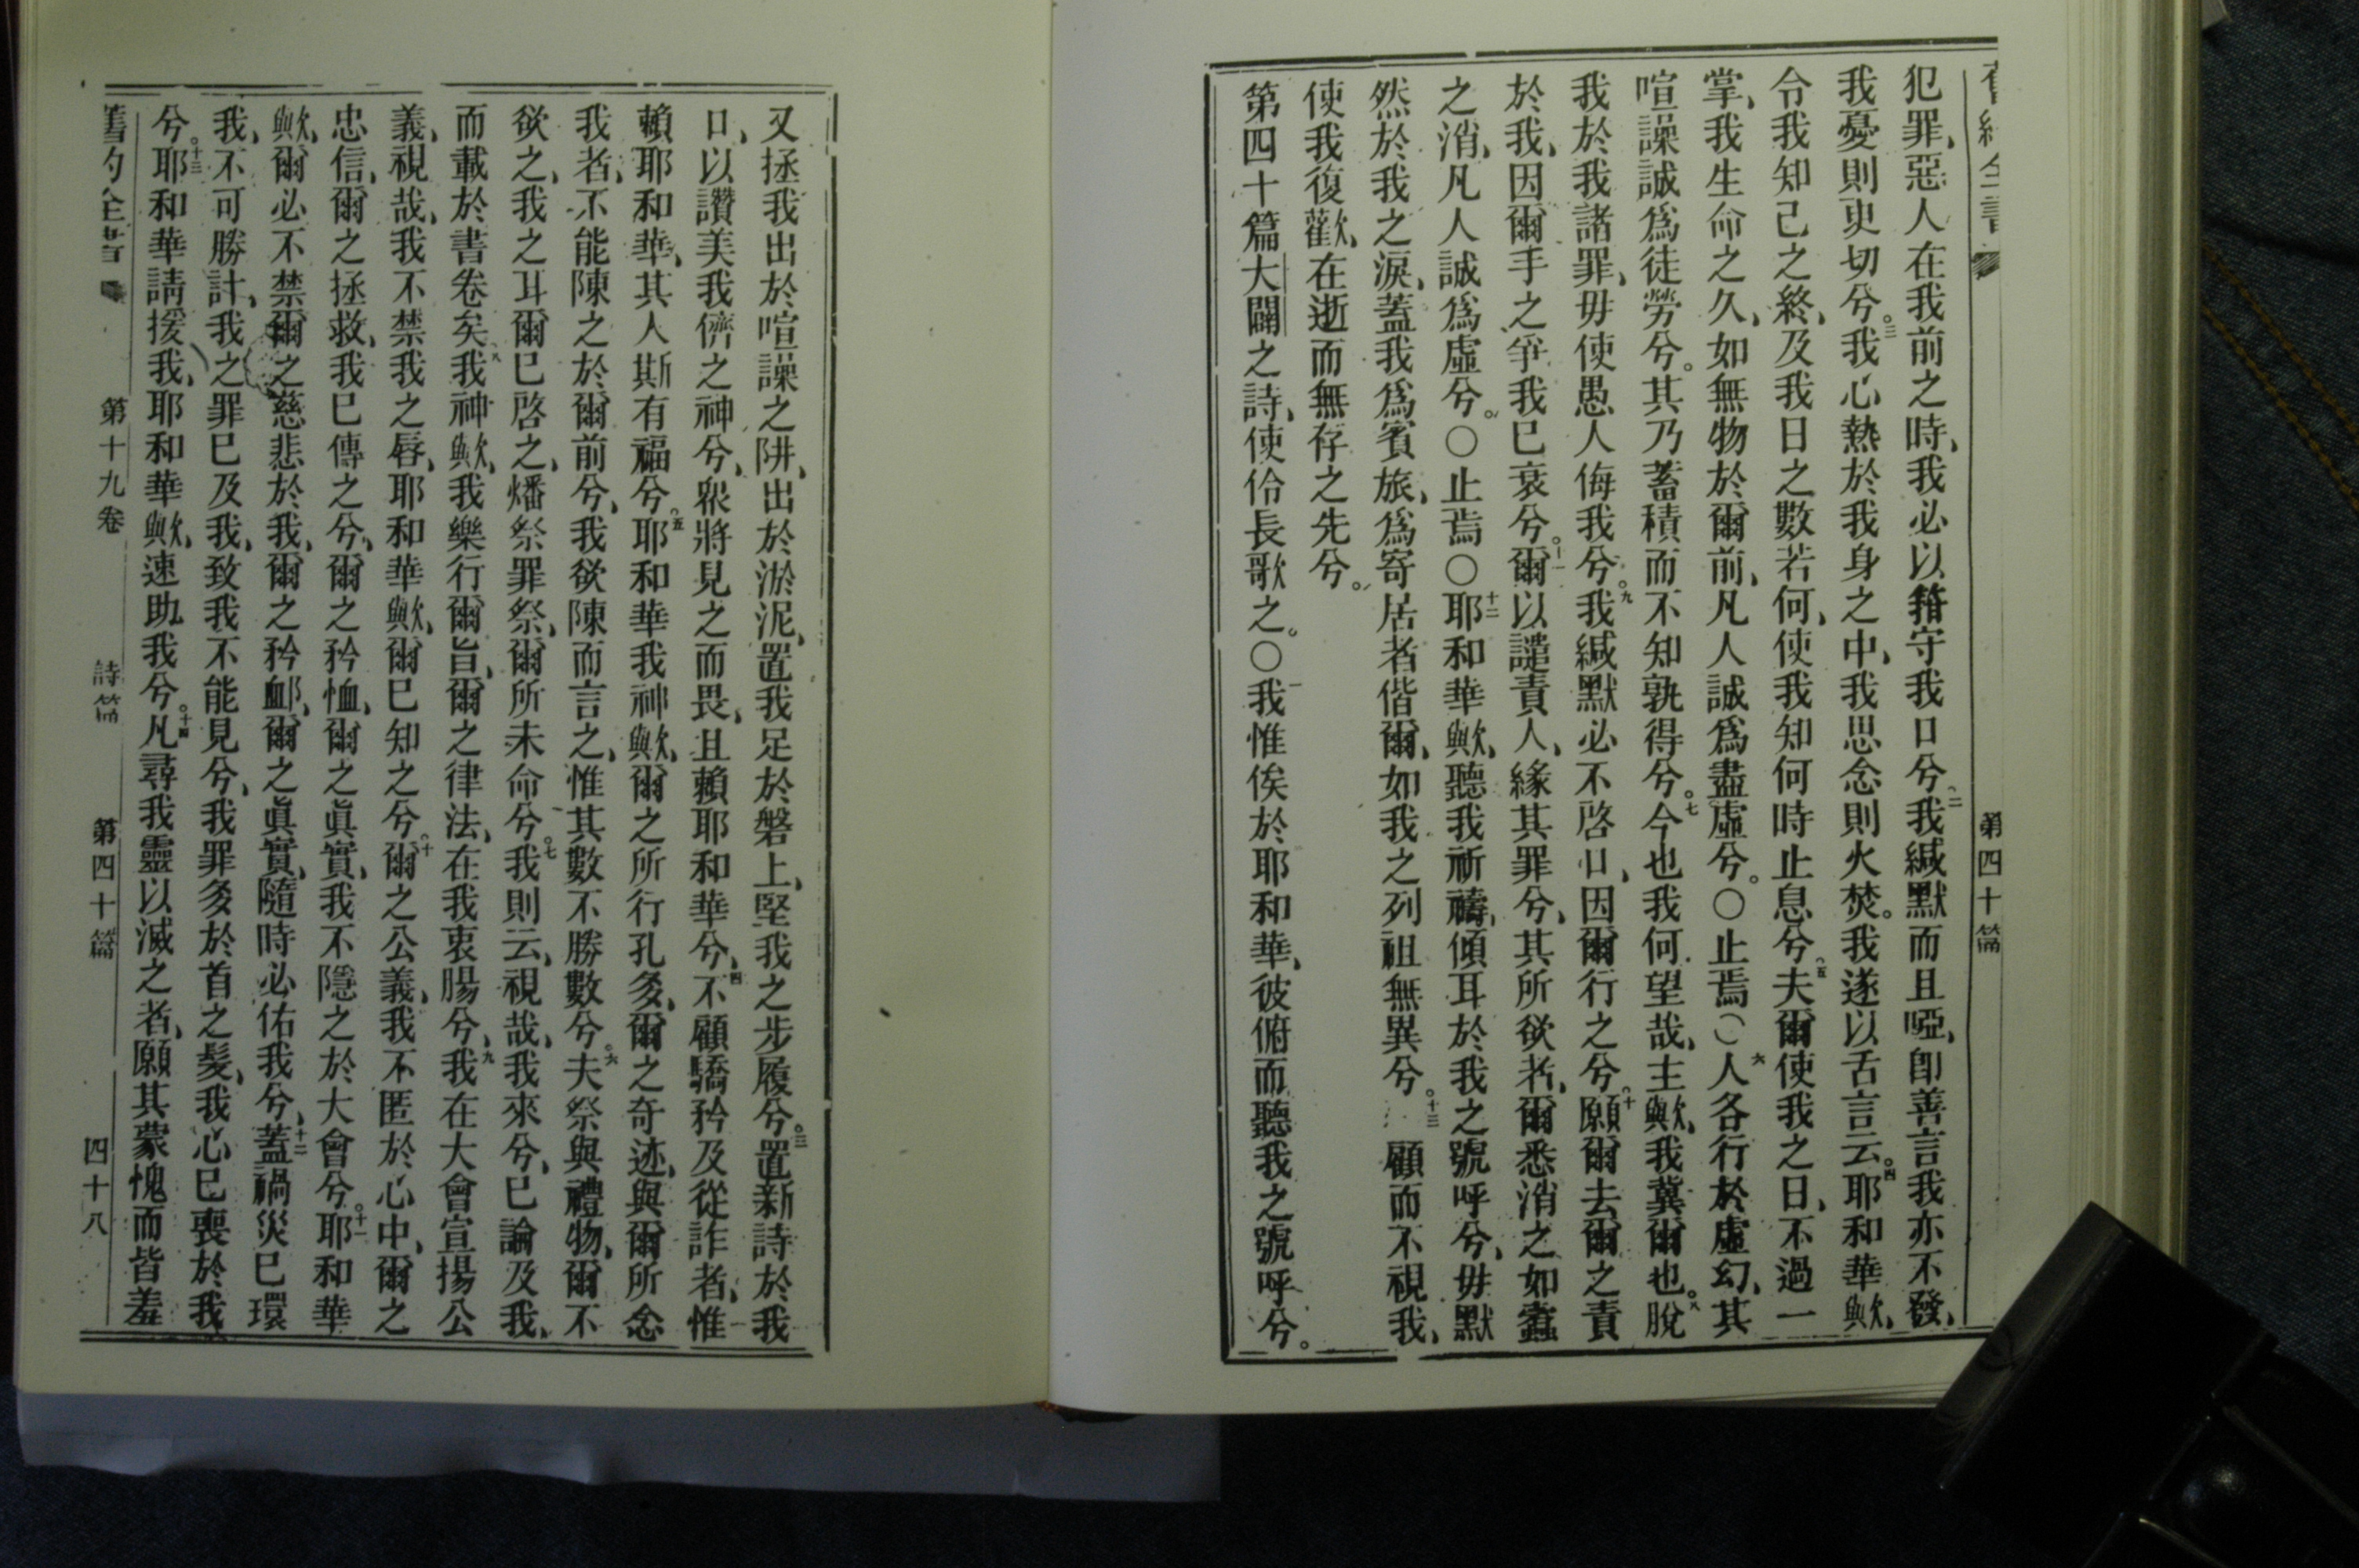 第四十篇
犯罪、惡人在我前之時、我必以籍守我口兮、二我緘默而且啞、卽善言我亦不發、
我憂則更切兮。三我心熱於我身之中、我思念則火焚。我遂以舌言云。四耶和華歟、
令我知己之終、及我日之數若何、使我知何時止息兮、五夫爾使我之日、不過一
掌、我生命之久、如無物於爾前、凡人誠爲盡虛兮。〇止焉〇六人各行於虛幻、其
喧譟誠爲徒勞兮。其乃蓄積而不知孰得兮。七今也我何望哉、主歟、我冀爾也。八脫
我於我諸罪、毋使愚人侮我兮。九我緘默必不啓口、因爾行之兮。十願爾去爾之責
於我、因爾手之爭我已衰兮。十一爾以譴責人、緣其罪兮、其所欲者、爾悉消之如蠹
之消、凡人誠爲虛兮。〇止焉〇十二耶和華歟、聽我祈禱、傾耳於我之號呼兮、毋默
然於我之淚、蓋我爲賓旅、爲寄居者偕爾、如我之列祖無異兮。十三顧而不視我、
使我復歡、在逝而無存之先兮。
第四十篇大闢之詩、使伶長歌之。〇一我惟俟於耶和華、彼俯而聽我之號呼兮。
又拯我出於喧譟之阱、出於淤泥、置我足於磐上、堅我之步履兮。三置新詩於我
口、以讚美我儕之神兮、衆將見之而畏、且賴耶和華兮、四不顧驕矜及從詐者、惟
賴耶和華、其人斯有福兮。五耶和華我神歟、爾之所行孔多、爾之奇迹、與爾所念
我者、不能陳之於爾前兮、我欲陳而言之、惟其數不勝數兮。六夫祭與禮物、爾不
欲之、我之耳爾已啓之、燔祭罪祭、爾所未命兮。七我則云、視哉、我來兮、已論及我、
而載於書卷矣、八我神歟、我樂行爾旨、爾之律法、在我衷腸兮、九我在大會宣揚公
義、視哉、我不禁我之唇、耶和華歟、爾已知之兮。十爾之公義、我不匿於心中、爾之
忠信、爾之拯救、我已傳之兮、爾之矜恤、爾之眞實、我不隱之於大會兮。十一耶和華
歟、爾必不禁爾之慈悲於我、爾之矜卹、爾之眞實、隨時必佑我兮、十二蓋禍災已環
我、不可勝計、我之罪已及我、致我不能見兮、我罪多於首之髮、我心已喪於我
兮。十三耶和華請援我、耶和華歟、速助我兮。十四凡尋我靈以滅之者、願其蒙愧而皆羞
舊約全書 第十九卷 詩篇 第四十篇 四十八